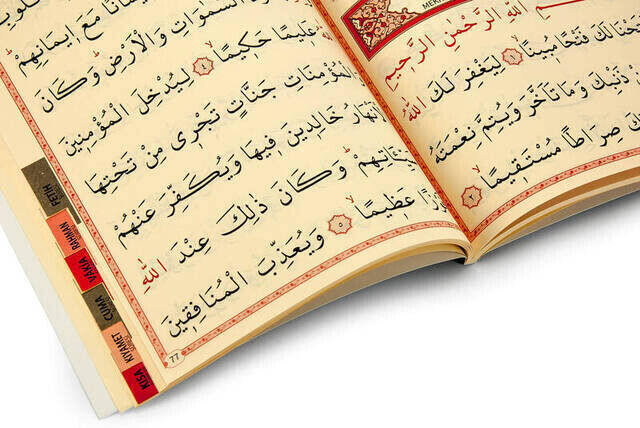 اللّٰهِ الرَّحْمٰنِ الرَّحٖيمِ
لَكَ فَتْحًا مُبٖينًاۙ ﴿١﴾ لِيَغْفِرَ لَكَ اللّٰهُ
ذَنْبِكَ وَمَا تَاَخَّرَ وَيُتِمَّ نِعْمَتَهُ
صِرَاطًا مُسْتَقٖيمًاۙ ﴿٢﴾
مَعَ اٖيمَانِهِمْ
السَّمٰوَاتِ وَالْاَرْضِ وَكَانَ
عَلٖيمًا حَكٖيمًاۙ ﴿٤﴾ لِيُدْخِلَ الْمُؤْمِنٖينَ
وَالْمُؤْمِنَاتِ جَنَّاتٍ تَجْرٖى مِنْ تَحْتِهَا
الْاَنْهَارُ خَالِدٖينَ فٖيهَا وَيُكَفِّرَ عَنْهُمْ
وَكَانَ ذٰلِكَ عِنْدَ اللّٰهِ
عَظٖيمًاۙ ﴿٥﴾ وَيُعَذِّبَ الْمُنَافِقٖينَ
77
FETİH
RAHMAN
VAKIA
CUMA
KIYAMET
KISA